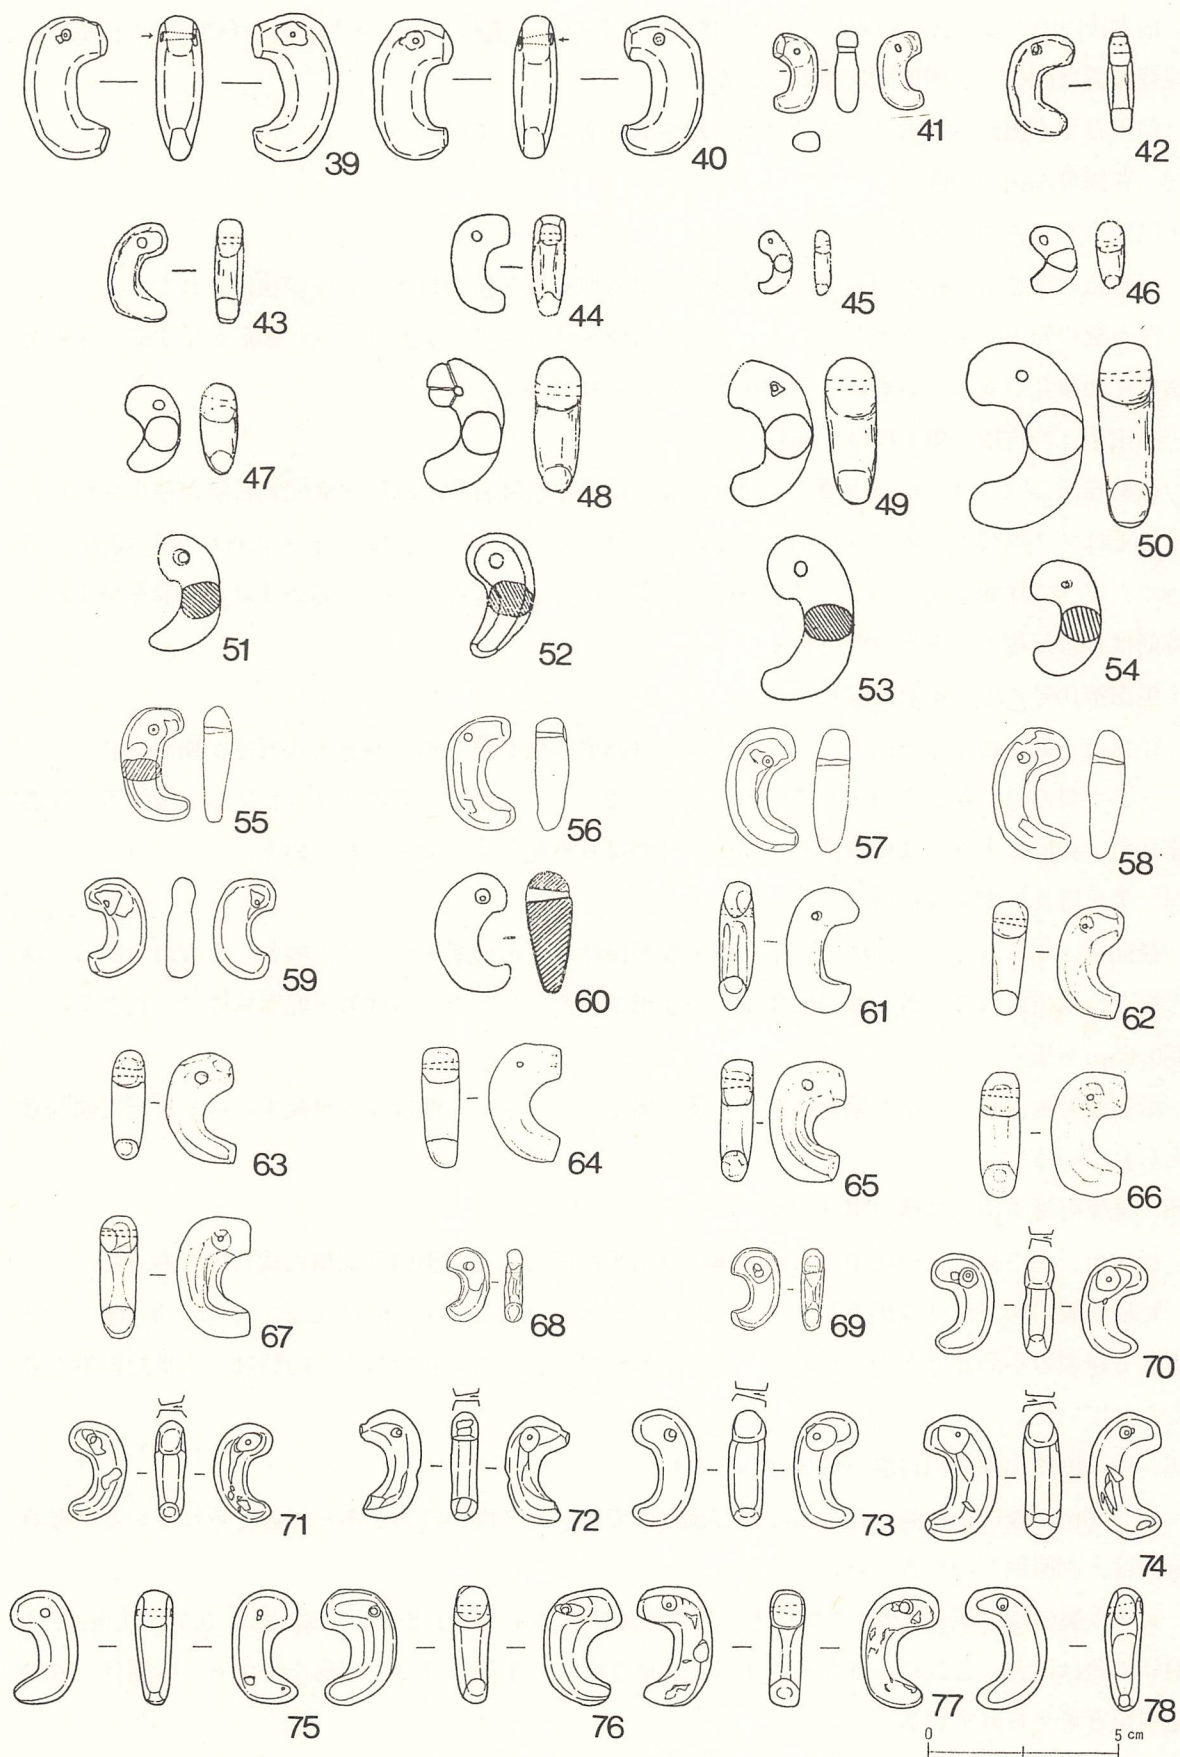 39 40 41 42
43 44 45 46
47 48 49 50
51 52 53 54
55 56 57 58
59 60 61 62
63 64 65 66
67 68 69 70
71 72 73 74
75 76 77 78
0 5 cm